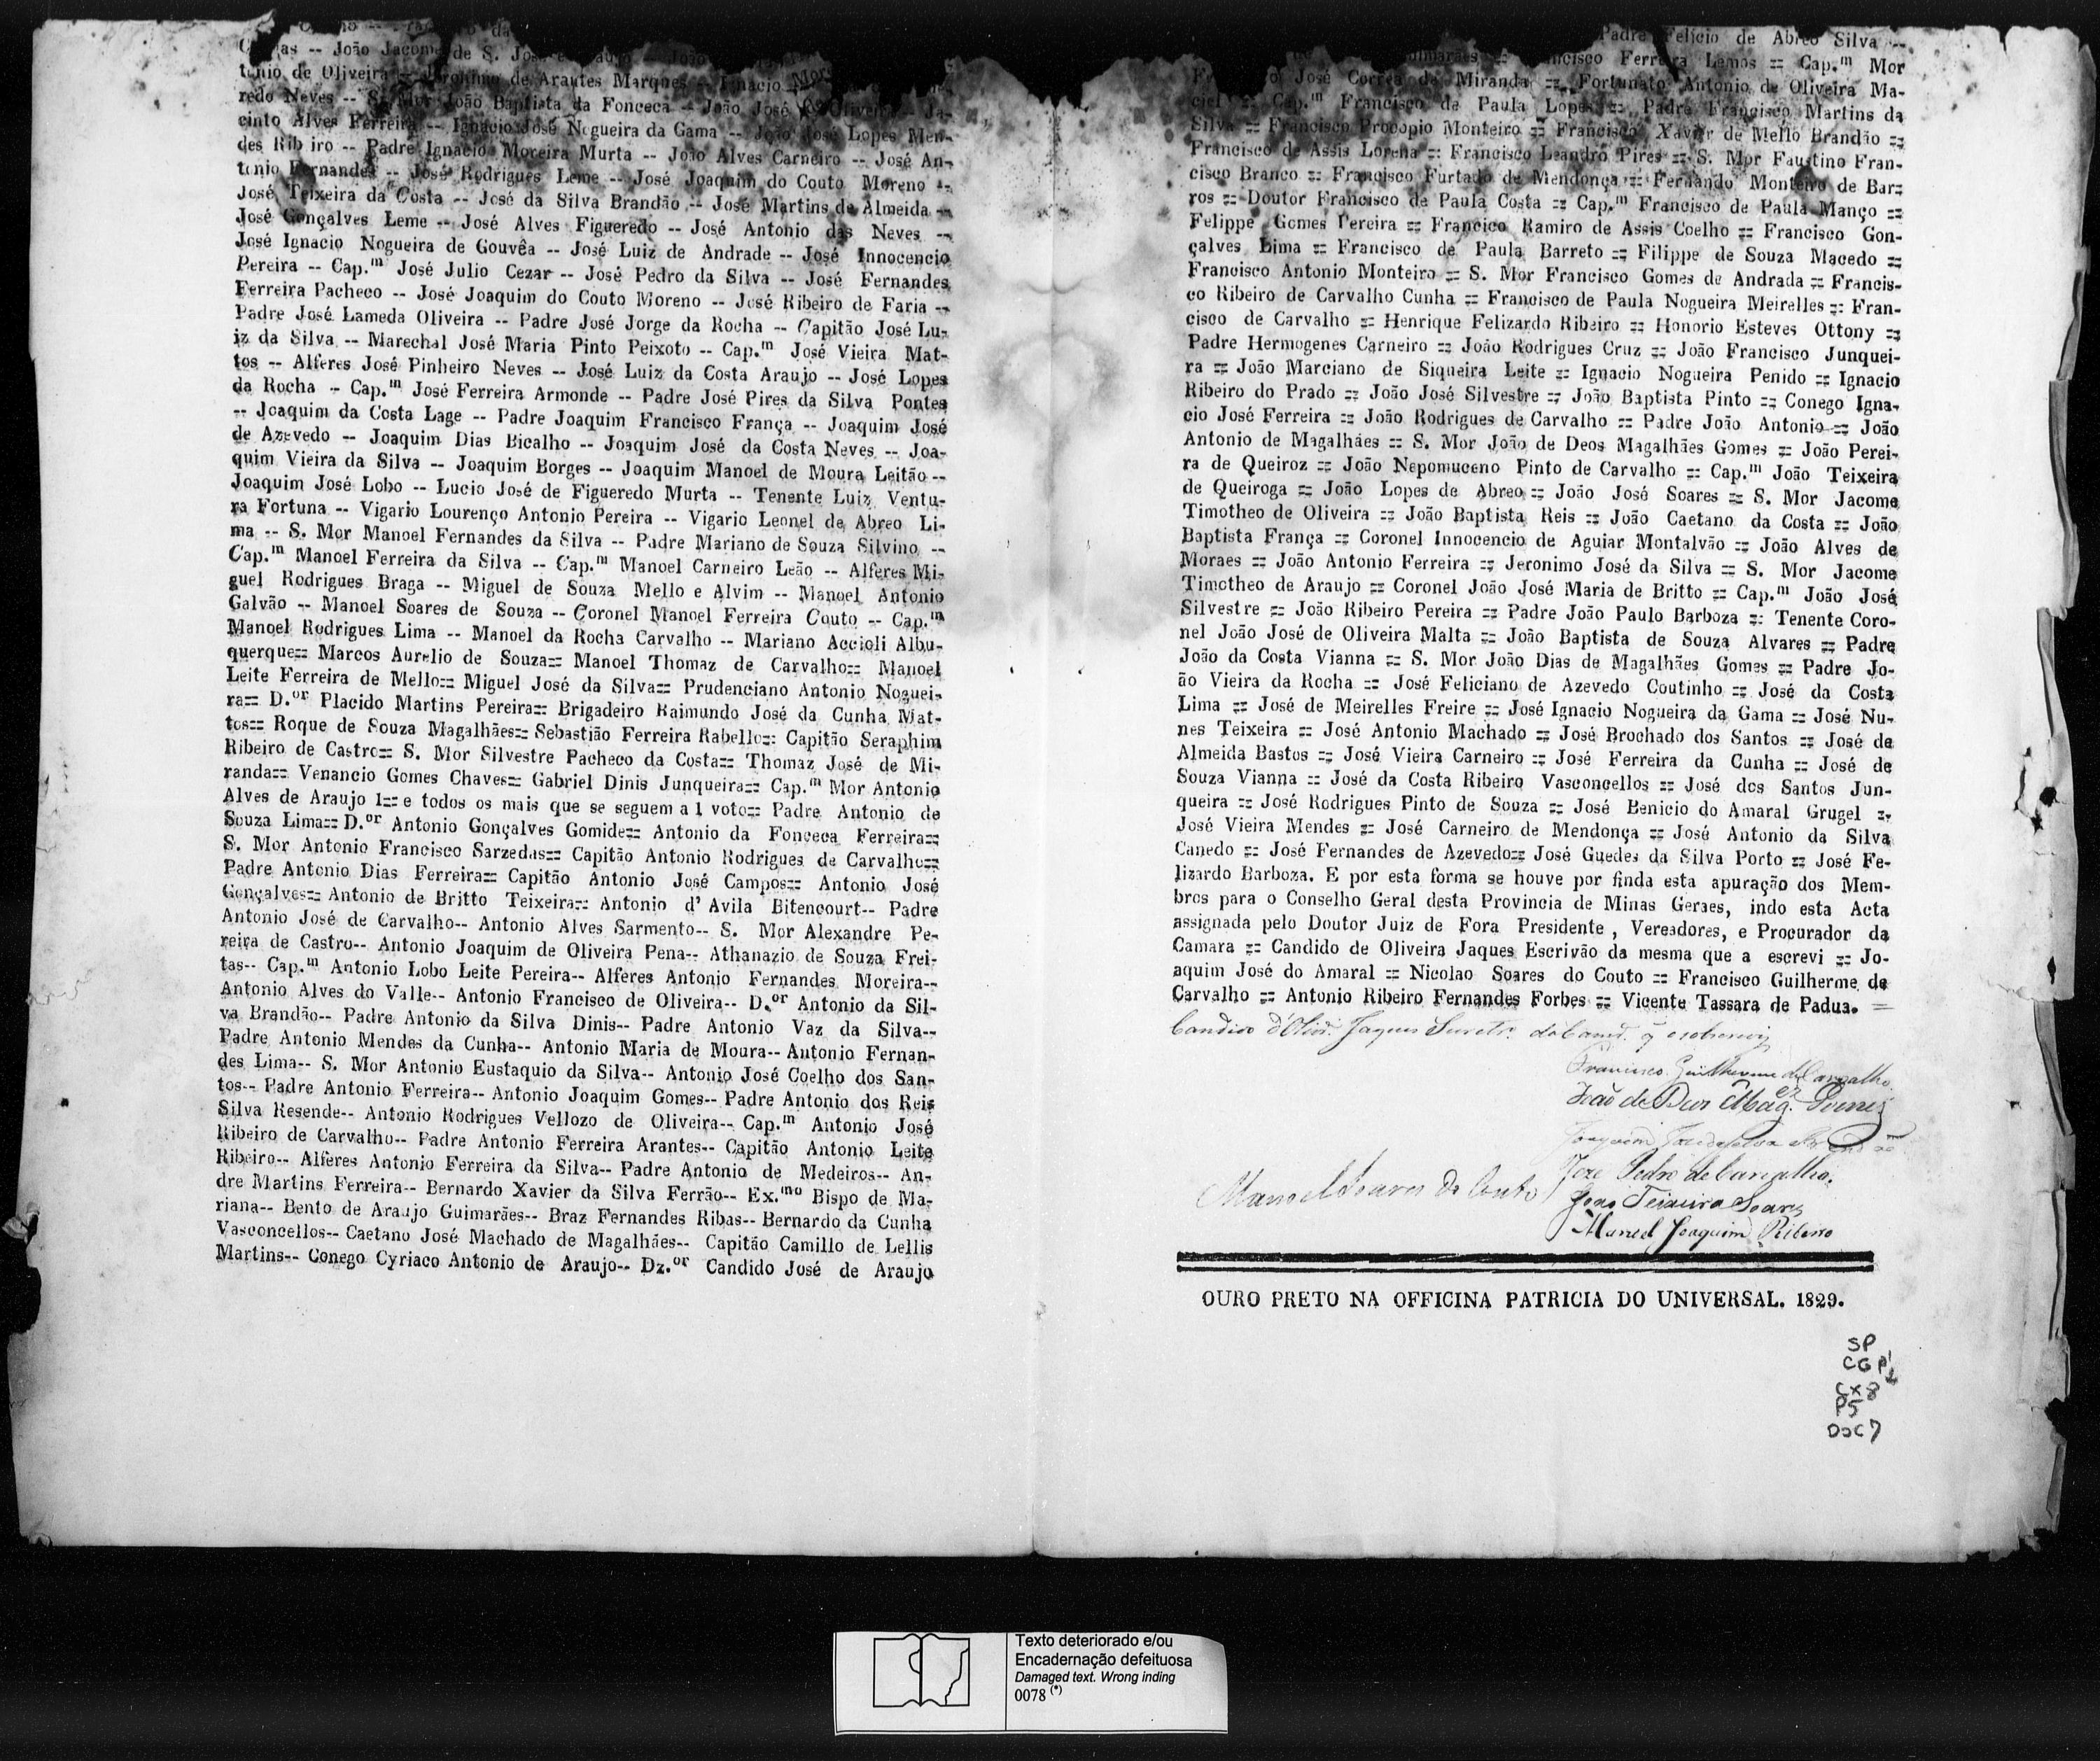 -- João Jacome de S. José
tonio de Oliveira -- Jeronimo de Arautes Marques -- Ignacio
redo Neves -- S. Mor João Baptista da Fonceca -- João José de Oliveira -- Ja-
cinto Alves Ferreira -- Ignacio José Nogueira da Gama -- João José Lopes Men-
des Rib iro -- Padre Ignacio Moreira Murta -- João Alves Carneiro -- José An-
tonio Fernandes -- José Rodrigues Leme -- José Joaquim do Couto Moreno --
José Teixeira da Costa -- José da Silva Brandão -- José Martins de Almeida --
José Gonçalves Leme -- José Alves Figueredo -- José Antonio das Neves --
José Ignacio Nogueira de Gouvêa -- José Luiz de Andrade -- José Innocencio
Pereira -- Cap.m José Julio Cezar -- José Pedro da Silva -- José Fernandes
Ferreira Pacheco -- José Joaquim do Couto Moreno -- José Ribeiro de Faria --
Padre José Lameda Oliveira -- Padre José Jorge da Rocha -- Capitão José Lu-
iz da Silva -- Marechal José Maria Pinto Peixoto -- Cap.m José Vieira Mat-
tos -- Alferes José Pinheiro Neves -- José Luiz da Costa Araujo -- José Lopes
da Rocha -- Cap.m José Ferreira Armonde -- Padre José Pires da Silva Pontes
-- Joaquim da Costa Lage -- Padre Joaquim Francisco França -- Joaquim José
de Azevedo -- Joaquim Dias Bicalho -- Joaquim José da Costa Neves -- Joa-
quim Vieira da Silva -- Joaquim Borges -- Joaquim Manoel de Moura Leitão --
Joaquim José Lobo -- Lucio José de Figueredo Murta -- Tenente Luiz Ventu-
ra Fortuna -- Vigario Lourenço Antonio Pereira -- Vigario Leonel de Abreo Li-
ma -- S. Mor Manoel Fernandes da Silva -- Padre Mariano de Souza Silvino --
Cap.m Manoel Ferreira da Silva -- Cap.m Manoel Carneiro Leão -- Alferes Mi-
guel Rodrigues Braga -- Miguel de Souza Mello e Alvim -- Manoel Antonio
Galvão -- Manoel Soares de Souza -- Coronel Manoel Ferreira Couto -- Cap.m
Manoel Rodrigues Lima -- Manoel da Rocha Carvalho -- Mariano Accioli Albu-
querque== Marcos Aurelio de Souza== Manoel Thomaz de Carvalho== Manoel
Leite Ferreira de Mello== Miguel José da Silva== Prudenciano Antonio Noguei-
ra== D.or Placido Martins Pereira== Brigadeiro Raimundo José da Cunha Mat-
tos== Roque de Souza Magalhães== Sebastião Ferreira Rabello== Capitão Seraphim
Ribeiro de Castro== S. Mor Silvestre Pacheco da Costa== Thomaz José de Mi-
randa== Venancio Gomes Chaves== Gabriel Dinis Junqueira== Cap.m Mor Antonio
Alves de Araujo 1== e todos os mais que se seguem a 1 voto== Padre Antonio de
Souza Lima== D.or Antonio Gonçalves Gomide== Antonio da Fonceca Ferreira==
S. Mor Antonio Francisco Sarzedas== Capitão Antonio Rodrigues de Carvalho==
Padre Antonio Dias Ferreira== Capitão Antonio José Campos== Antonio José
Gonçalves== Antonio de Britto Teixeira== Antonio d' Avila Bitencourt-- Padre
Antonio José de Carvalho-- Antonio Alves Sarmento-- S. Mor Alexandre Pe-
reira de Castro-- Antonio Joaquim de Oliveira Pena-- Athanazio de Souza Frei-
tas-- Cap.m Antonio Lobo Leite Pereira-- Alferes Antonio Fernandes Moreira--
Antonio Alves do Valle-- Antonio Francisco de Oliveira-- D.or Antonio da Sil-
va Brandão-- Padre Antonio da Silva Dinis-- Padre Antonio Vaz da Silva--
Padre Antonio Mendes da Cunha-- Antonio Maria de Moura-- Antonio Fernan-
des Lima-- S. Mor Antonio Eustaquio da Silva-- Antonio José Coelho dos San-
tos-- Padre Antonio Ferreira-- Antonio Joaquim Gomes-- Padre Antonio dos Reis
Silva Resende-- Antonio Rodrigues Vellozo de Oliveira-- Cap.m Antonio José
Ribeiro de Carvalho-- Padre Antonio Ferreira Arantes-- Capitão Antonio Leite
Ribeiro-- Alferes Antonio Ferreira da Silva-- Padre Antonio de Medeiros-- An-
dre Martins Ferreira-- Bernardo Xavier da Silva Ferrão-- Ex.mo Bispo de Ma-
riana-- Bento de Araujo Guimarães-- Braz Fernandes Ribas-- Bernardo da Cunha
Vasconcellos-- Caetano José Machado de Magalhães-- Capitão Camillo de Lellis
Martins-- Conego Cyriaco Antonio de Araujo-- Dz.or Candido José de Araujo
Padre Felicio de Abreo Silva --
Francisco Ferreira Lemos == Cap.m Mor
José Correa de Miranda == Fortunato Antonio de Oliveira Ma-
ciel == Cap.m Francisco de Paula Lopes == Padre Francisco Martins da
Silva == Francisco Procopio Monteiro == Francisco Xavier de Mello Brandão ==
Francisco de Assis Lorena == Francisco Leandro Pires == S. Mor Faustino Fran-
cisco Branco == Francisco Furtado de Mendonça == Fernando Monteiro de Bar=
ros == Doutor Francisco de Paula Costa == Cap.m Francisco de Paula Manço ==
Felippe Gomes Pereira == Francico Ramiro de Assis Coelho == Francisco Gon-
çalves Lima == Francisco de Paula Barreto == Filippe de Souza Macedo ==
Francisco Antonio Monteiro == S. Mor Francisco Gomes de Andrada == Francis-
co Ribeiro de Carvalho Cunha == Francisco de Paula Nogueira Meirelles == Fran-
cisco de Carvalho == Henrique Felizardo Ribeiro == Honorio Esteves Ottony ==
Padre Hermogenes Carneiro == João Rodrigues Cruz == João Francisco Junquei-
ra == João Marciano de Siqueira Leite == Ignacio Nogueira Penido == Ignacio
Ribeiro do Prado == João José Silvestre == João Baptista Pinto == Conego Igna-
cio José Ferreira == João Rodrigues de Carvalho == Padre João Antonio == João
Antonio de Magalhães == S. Mor João de Deos Magalhães Gomes == João Perei-
ra de Queiroz == João Nepomuceno Pinto de Carvalho == Cap.m João Teixeira
de Queiroga == João Lopes de Abreo == João José Soares == S. Mor Jacome
Timotheo de Oliveira == João Baptista Reis == João Caetano da Costa == João
Baptista França == Coronel Innocencio de Aguiar Montalvão == João Alves de
Moraes == João Antonio Ferreira == Jeronimo José da Silva == S. Mor Jacome
Timotheo de Araujo == Coronel João José Maria de Britto == Cap.m João José
Silvestre == João Ribeiro Pereira == Padre João Paulo Barboza == Tenente Coro-
nel João José de Oliveira Malta == João Baptista de Souza Alvares == Padre
João da Costa Vianna == S. Mor João Dias de Magalhães Gomes == Padre Jo-
ão Vieira da Rocha == José Feliciano de Azevedo Coutinho == José da Costa
Lima == José de Meirelles Freire == José Ignacio Nogueira da Gama == José Nu-
nes Teixeira == José Antonio Machado == José Brochado dos Santos == José de
Almeida Bastos == José Vieira Carneiro == José Ferreira da Cunha == José de
Souza Vianna == José da Costa Ribeiro Vasconcellos == José dos Santos Jun-
queira == José Rodrigues Pinto de Souza == José Benicio do Amaral Grugel ==
José Vieira Mendes == José Carneiro de Mendonça == José Antonio da Silva
Canedo == José Fernandes de Azevedo== José Guedes da Silva Porto == José Fe-
lizardo Barboza. E por esta forma se houve por finda esta apuração dos Mem-
bros para o Conselho Geral desta Provincia de Minas Geraes, indo esta Acta
assignada pelo Doutor Juiz de Fora Presidente , Vereadores, e Procurador da
Camara == Candido de Oliveira Jaques Escrivão da mesma que a escrevi == Jo-
aquim José do Amaral == Nicolao Soares do Couto == Francisco Guilherme de
Carvalho == Antonio Ribeiro Fernandes Forbes == Vicente Tassara de Padua. =
Candido d'Oliv.ra Jaques Secretr.o da Cam.a q escrevi
Francisco Guilherme de Carvalho
João de Deos Mag.es Gomes
Joaquim José da Silva
José Pedro de Carvalho.
Manoel Soares do Couto
João Teixeira Soares
Manoel Joaquim Ribeiro
OURO PRETO NA OFFICINA PATRICIA DO UNIVERSAL. 1829.
SP
CGP¹
Cx 8
P5
DOC 7
Texto deteriorado e/ou
Encadernação defeituosa
Damaged text. Wrong inding
0078 (*)